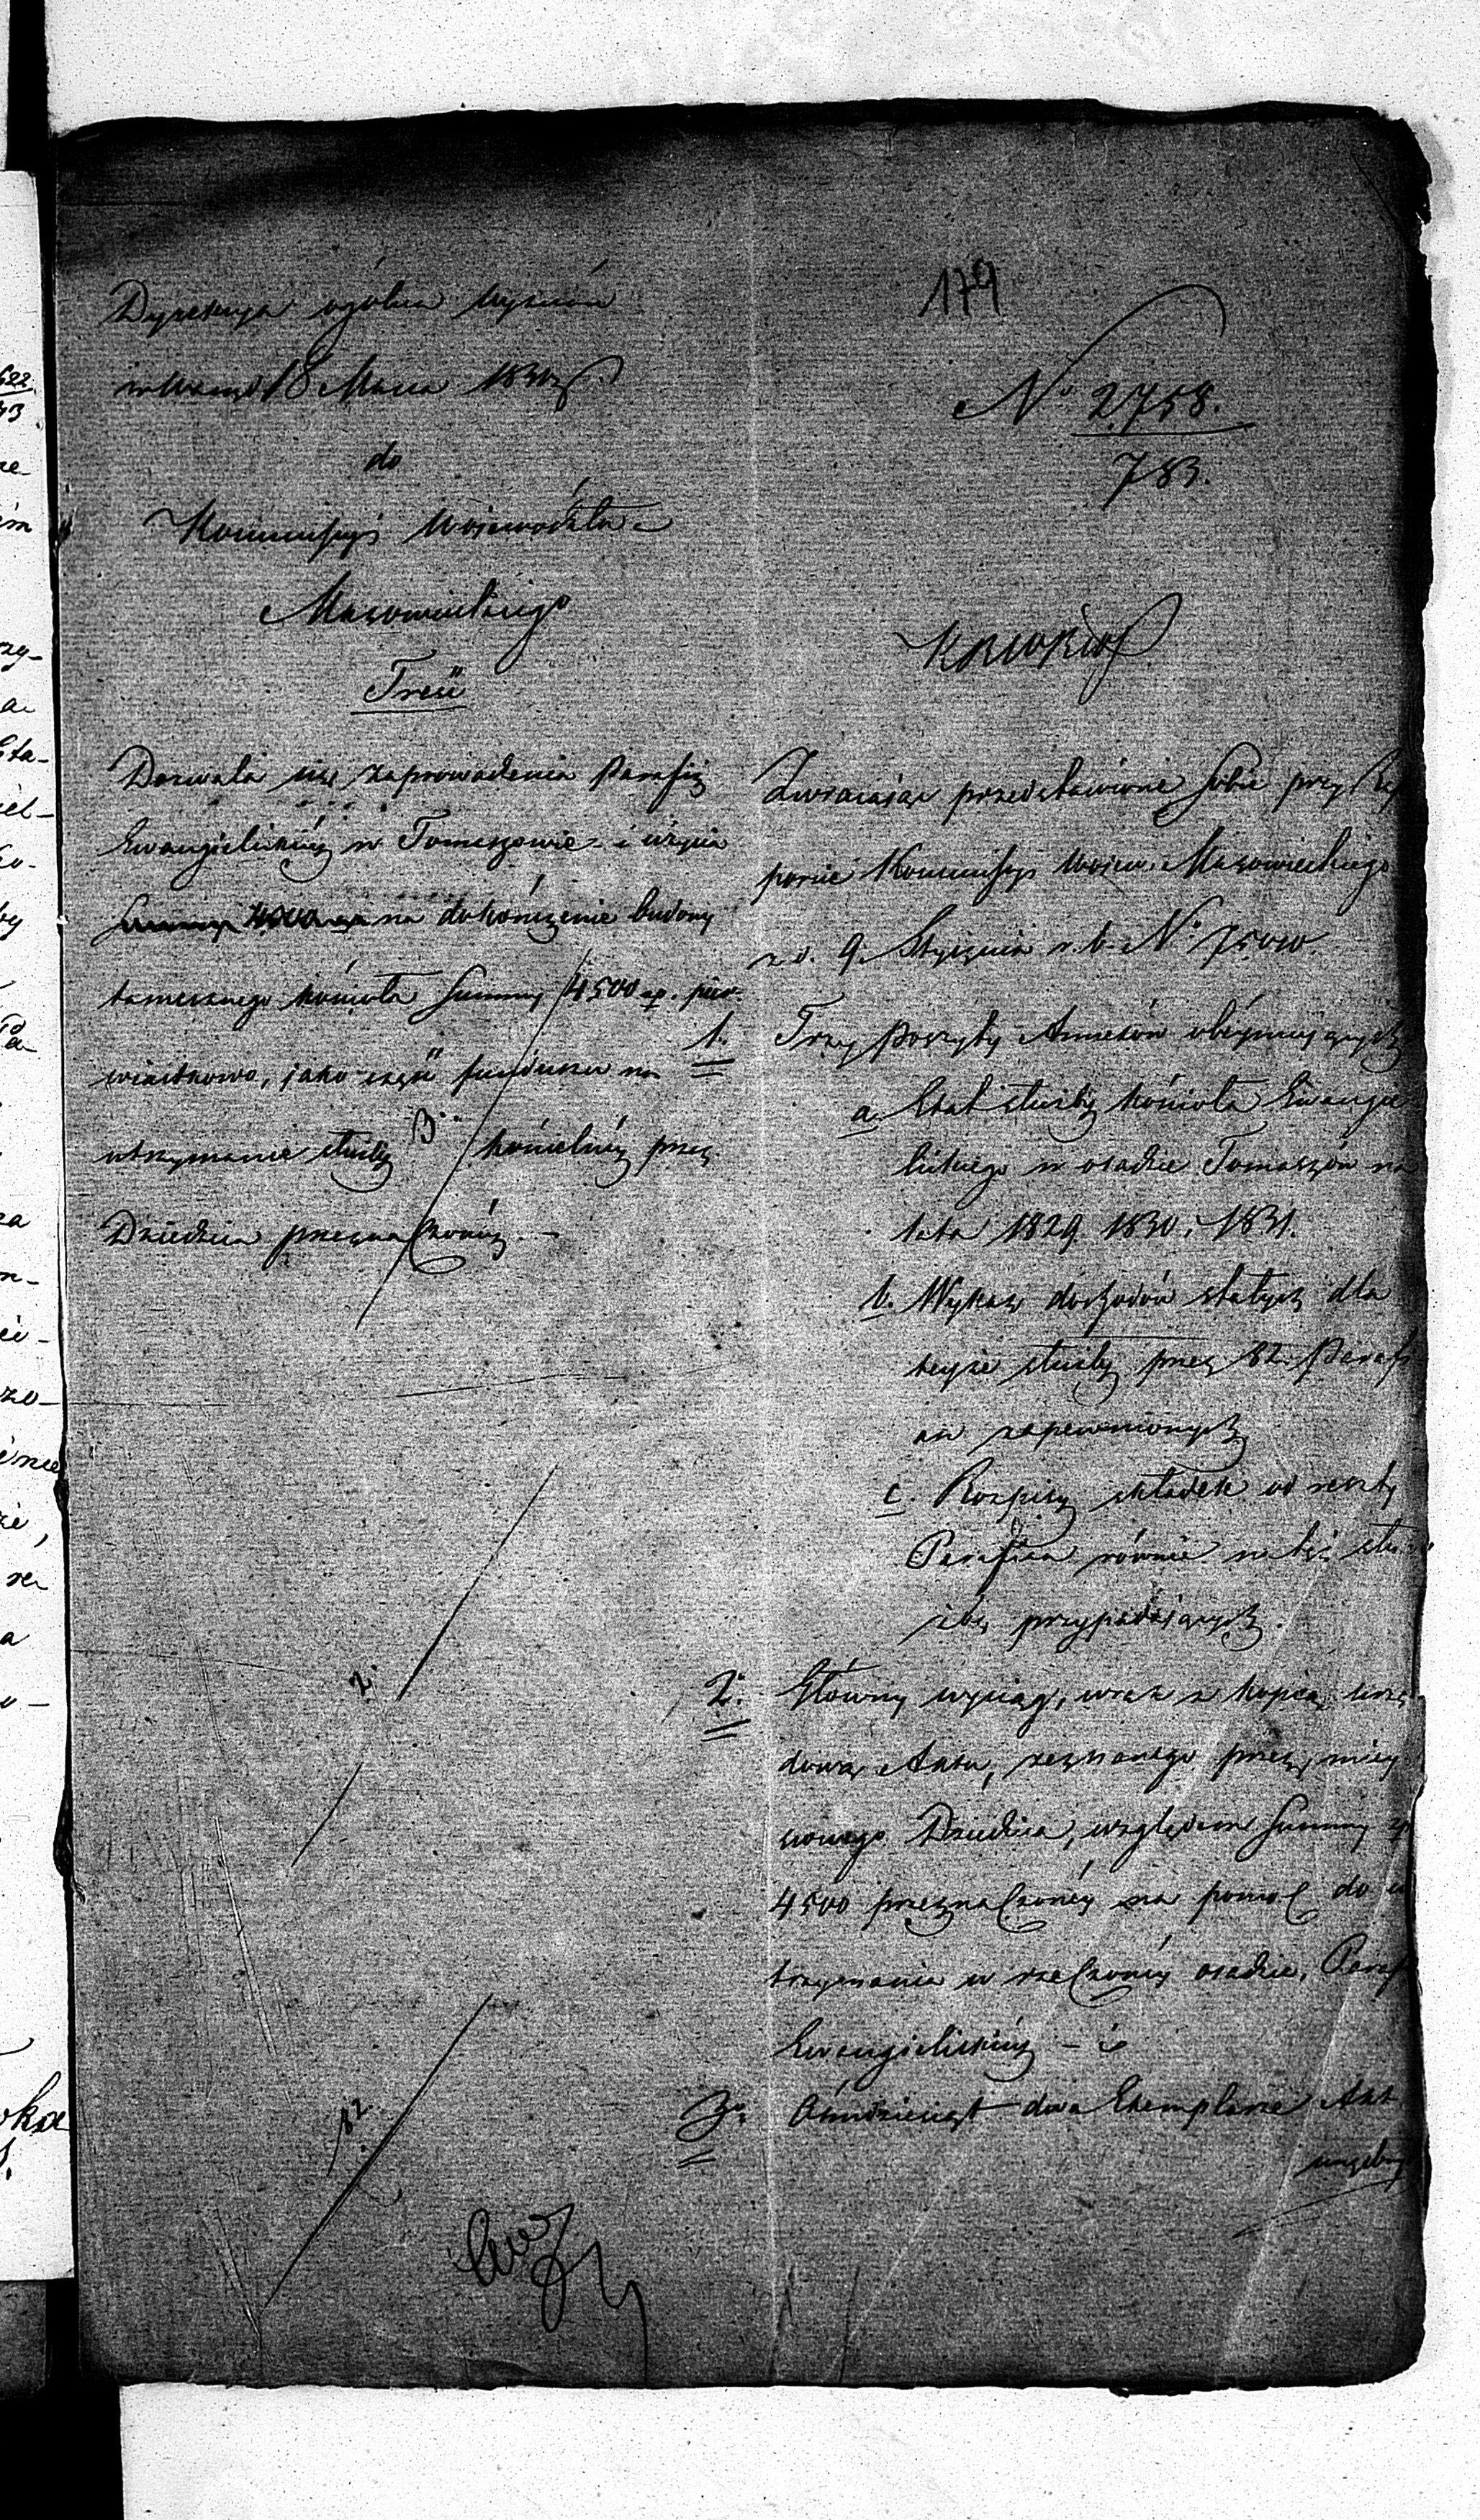 179
Dyrekcya ogólna Wyznań
18 Marca 1830 r.
do
Kommissyi Województwa
Mazowieckiego
Treść
Dozwala się zaprowadzenia Parafii
Ewangielickiéy w Tomaszowie i użycia
na dokończenie budowy
tamecznego kościoła Summy 4500 zp. pier-
wiastkowo, jako część funduszu na
utrzymanie służby kościelnéy przez
Dziedzica przeznaczonéy. —
3.
2.
82.
No 2758.
783.
KRWRiOP
Zwracając przedstawione sobie przy Rap
porcie Kommissyi Wojew. Mazowieckiego
z d. 9 Stycznia r. b. No 75010
1. Trzy Poszyty Annexów obeymujących
a. Etat służby kościoła Ewangie
lickiego w osadzie Tomaszów na
lata 1829. 1830. 1831.
b. Wykaz dochodów stałych dla
teyże służby przez 82. Paraf
an zapewnionych
c. Rozpisy składek od reszty
Parafian równie na też słu
żbę przypadających.
2. Główny wyciąg, wraz z kopią urzę
dową Aktu, zeznanego przez miey
scowego Dziedzica, względem Summy zp
4500 przeznaczonéy na pomoc do u
trzymania w rzeczonéy osadzie, Paraf
Ewangielickiéy — i
3. Ośmdziesiąt dwa Exemplarze Akt